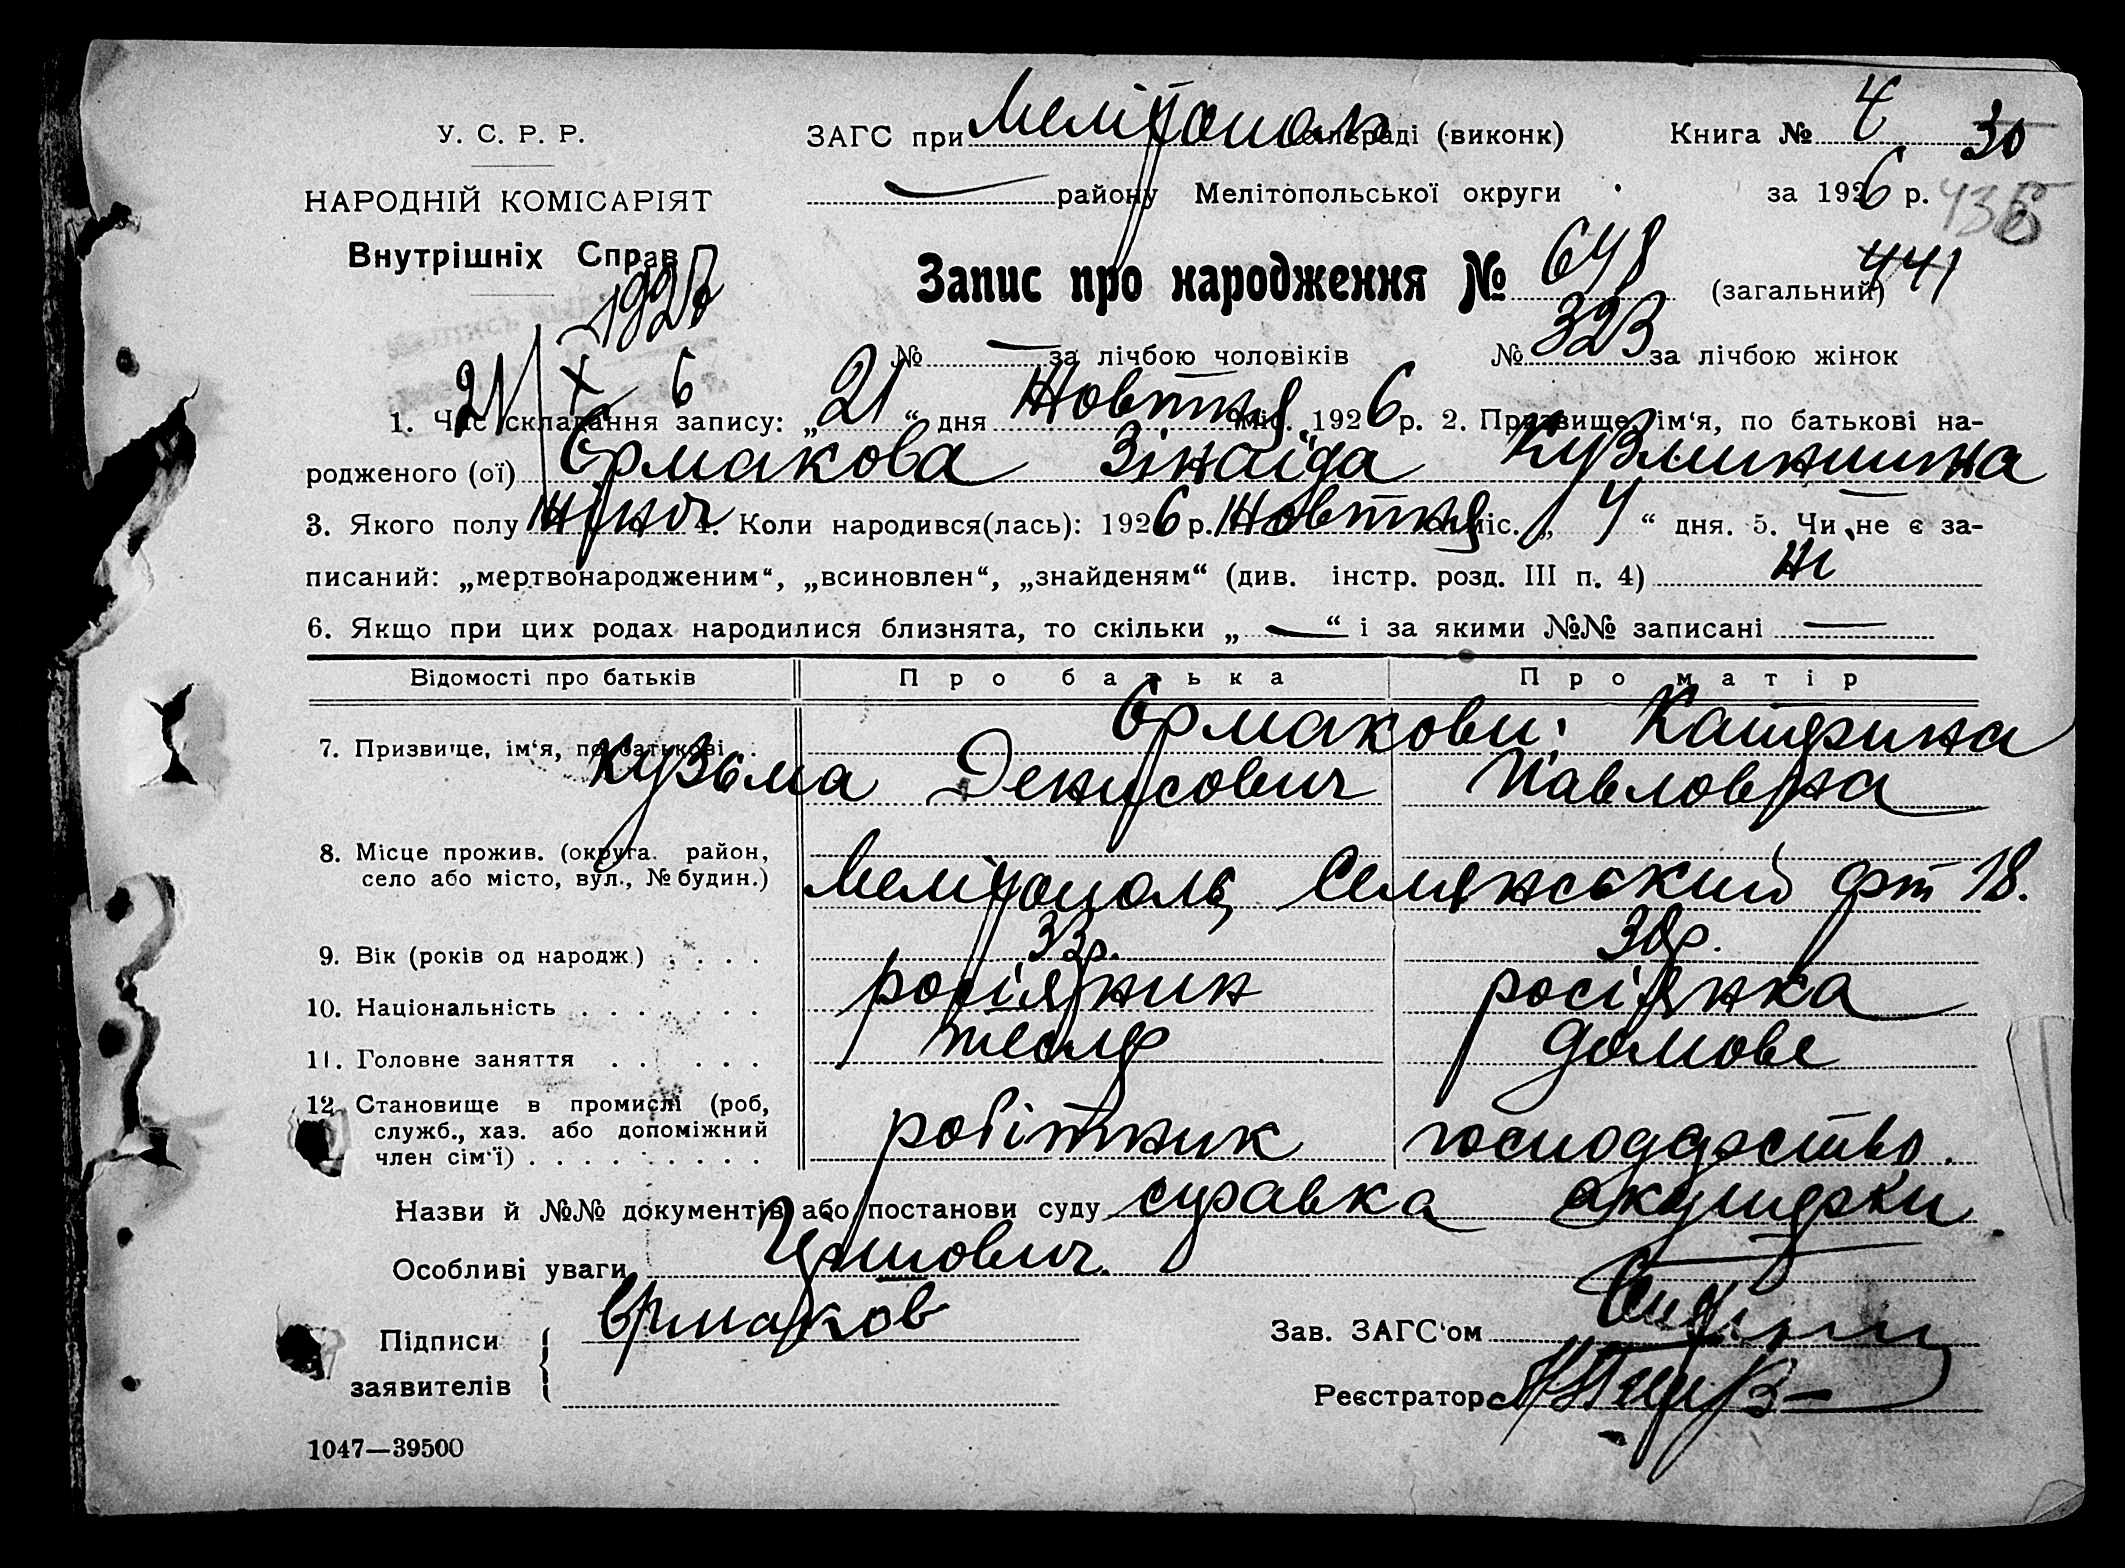 У. С. Р. Р.
НАРОДНІЙ КОМІСАРІЯТ
Внутрішніх Справ
ЗАГС при Мелітополь сільраді (виконк) Книга № 4 30
— району Мелітопольської округи за 1926 р. 436
Запис про народження № 648 (загальний) 441
№ — за лічбою чоловіків № 323 за лічбою жінок
21/X 6
1. Час складання запису: „21“ дня Жовтня міс. 1926 р. 2. Призвище, ім‘я, по батькові на-
родженого (ої) Єрмакова Зінаїда Кузминишна
3. Якого полу жіноч 4. Коли народився(лась): 1926 р. Жовтня міс. „4“ дня. 5. Чи не є за-
писаний: „мертвонародженим“, „всиновлен“, „знайденям“ (див. інстр. розд. III п. 4) ні
6. Якщо при цих родах народилися близнята, то скільки „—“ і за якими №№ записані —
Відомості про батьків Про батька Про матір
7. Призвище, ім‘я, по батькові . Єрмакови: Катерина
Кузьма Денисович Павловна
8. Місце прожив. (округа. район,
село або місто, вул., № будин.) Мелітополь, Семенський 18.
9. Вік (років од народж.) . . . . 33р. 30р.
10. Національність . . . . . . . росіянин росіянка
11. Головне заняття . . . . . . тесляр домове
12. Становище в промислі (роб,
служб., хаз. або допоміжний
член сім‘ї) . . . . . . . . . . робітник господарство.
Назви й №№ документів або постанови суду справка акушерки
Особливі уваги
Підписи Єрмаков Зав. ЗАГС‘ом
заявителів Реєстратор
1047—39500